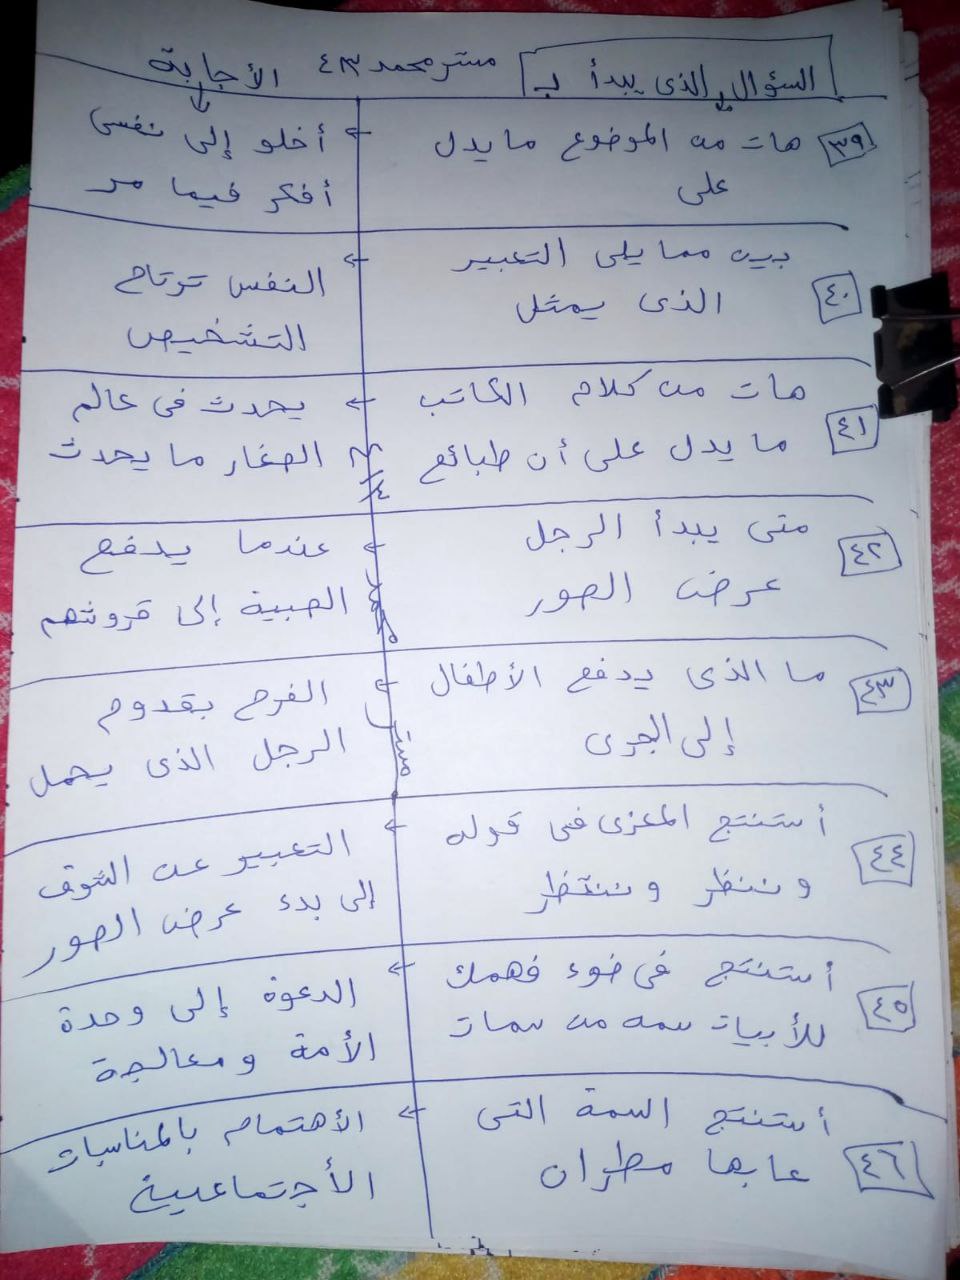 السؤال الذى يبدأ بـ
مستر محمد ٤٣
الأجابة
٣٩
هات من الموضوع ما يدل
على
أخلو إلى نفسى
أفكر فيما مر
٤٠
بين مما يلى التعبير
الذى يمثل
النفس ترتاح
التشخيص
٤١
هات من كلام الكاتب
ما يدل على أن طبائع
يحدث فى عالم
الصغار ما يحدث
٤٢
متى يبدأ الرجل
عرض الصور
عندما يدفع
الصبية إلى قروشهم
٤٣
ما الذى يدفع الأطفال
إلى الجرى
الفرح بقدوم
الرجل الذى يحمل
مستر محمد
٤٤
أستنتج المغزى فى قوله
وننظر وننتظر
التعبير عن الشوق
إلى بدء عرض الصور
٤٥
أستنتج فى ضوء فهمك
للأبيات سمه من سمات
الدعوة إلى وحدة
الأمة ومعالجة
٤٦
أستنتج السمة التى
عابها مطران
الأهتمام بالمناسبات
الأجتماعية